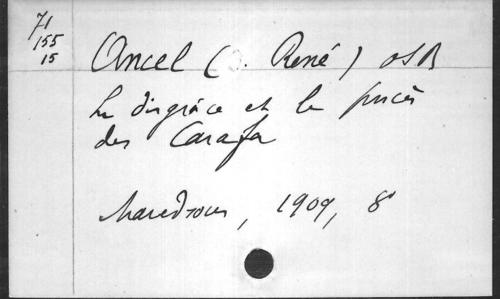 71
155
15
Ancel (D. René) OSB
La disgrâce et le procès
des Carafa
Maredsous, 1909, 8°